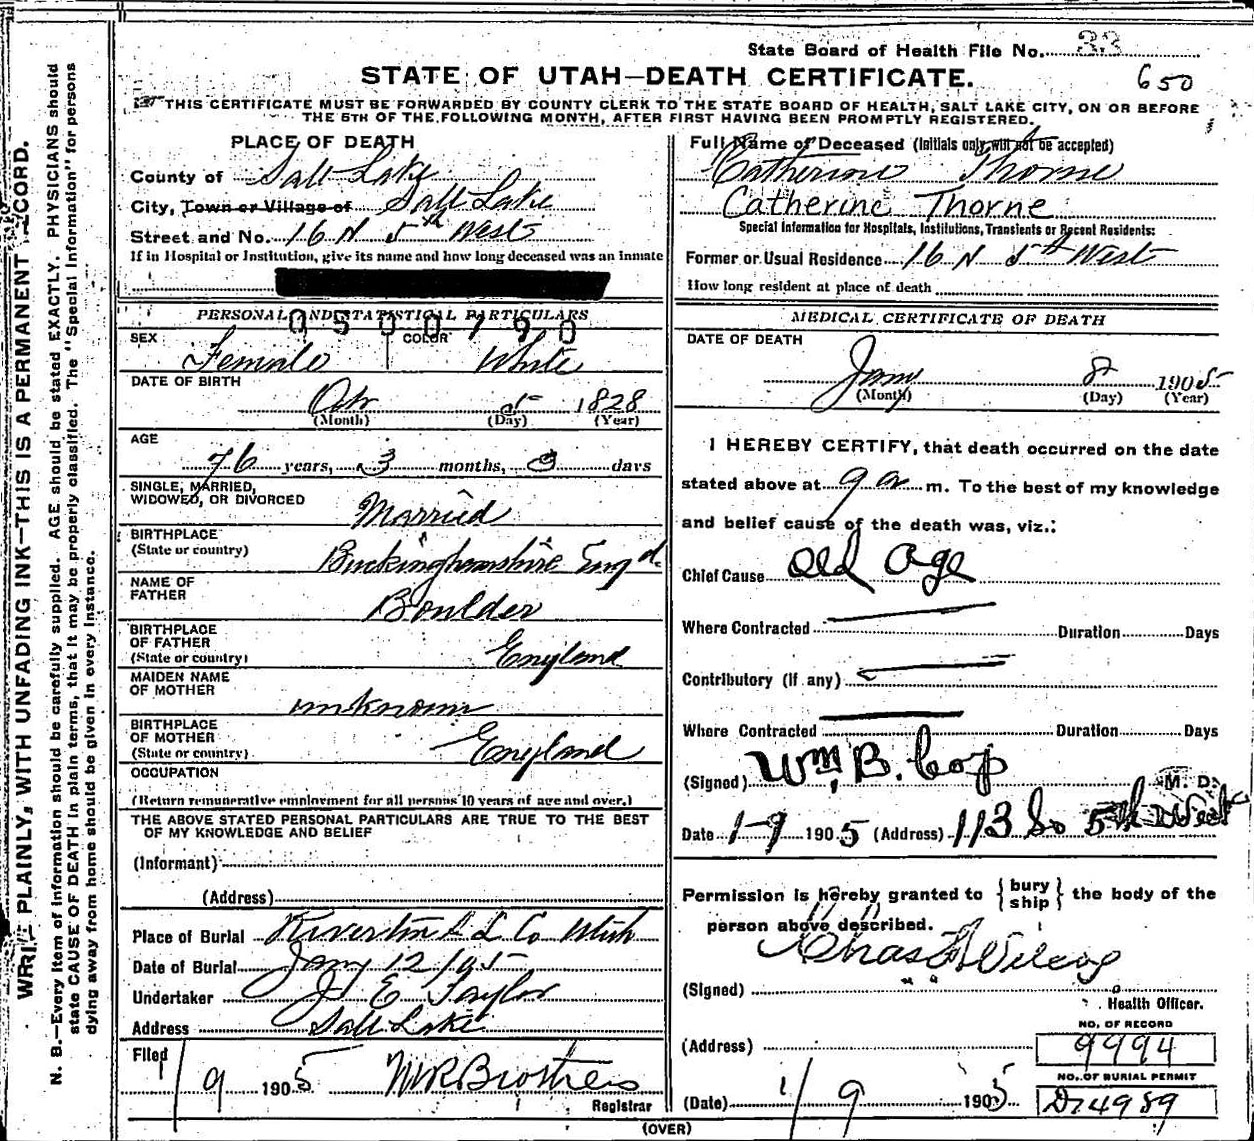 State Board of Health File No. 33
650
STATE OF UTAH—DEATH CERTIFICATE.
THIS CERTIFICATE MUST BE FORWARDED BY COUNTY CLERK TO THE STATE BOARD OF HEALTH, SALT LAKE CITY, ON OR BEFORE
THE 5TH OF THE FOLLOWING MONTH, AFTER FIRST HAVING BEEN PROMPTLY REGISTERED.
PLAINLY, WITH UNFADING INK—THIS IS A PERMANENT
N. B.—Every item of information should be carefully supplied. AGE should be stated EXACTLY. PHYSICIANS should
state CAUSE OF DEATH in plain terms, that it may be properly classified. The "Special Information" for persons
dying away from home should be given in every instance.
PLACE OF DEATH
County of Salt Lake
City, Town or Village of Salt Lake
Street and No. 16 N 5th West
If in Hospital or Institution, give its name and how long deceased was an inmate
PERSONAL AND STATISTICAL PARTICULARS
0500790
SEX Female COLOR White
DATE OF BIRTH
Octr 5 1828
(Month) (Day) (Year)
AGE
76 years, 3 months, 3 days
SINGLE, MARRIED,
WIDOWED, OR DIVORCED Married
BIRTHPLACE
(State or country) Buckinghamshire Engd.
NAME OF
FATHER Boulder
BIRTHPLACE
OF FATHER
(State or country) England
MAIDEN NAME
OF MOTHER unknown
BIRTHPLACE
OF MOTHER
(State or country) England
OCCUPATION
(Return remunerative employment for all persons 10 years of age and over.)
THE ABOVE STATED PERSONAL PARTICULARS ARE TRUE TO THE BEST
OF MY KNOWLEDGE AND BELIEF
(Informant)
(Address)
Place of Burial Riverton S L Co Utah
Date of Burial Jany 12/05
Undertaker J E Taylor
Address Salt Lake
Filed
1/9 1905
Registrar
Full Name of Deceased (Initials only will not be accepted)
Catherine Thorne
Catherine Thorne
Special Information for Hospitals, Institutions, Transients or Recent Residents:
Former or Usual Residence 16 N 5th West
How long resident at place of death
MEDICAL CERTIFICATE OF DEATH
DATE OF DEATH
Jany 8 1905
(Month) (Day) (Year)
I HEREBY CERTIFY, that death occurred on the date
stated above at 9 a m. To the best of my knowledge
and belief cause of the death was, viz.:
Chief Cause Old Age
Where Contracted Duration Days
Contributory (if any)
Where Contracted Duration Days
(Signed) Wm. B. M. D.
Date 1-9 1905 (Address) 113 So 5th West
Permission is hereby granted to { bury ship } the body of the
person above described.
(Signed) Chas
Health Officer.
NO. OF RECORD
(Address) 9994
NO. OF BURIAL PERMIT
(Date) 1/9 1905 D74989
(OVER)